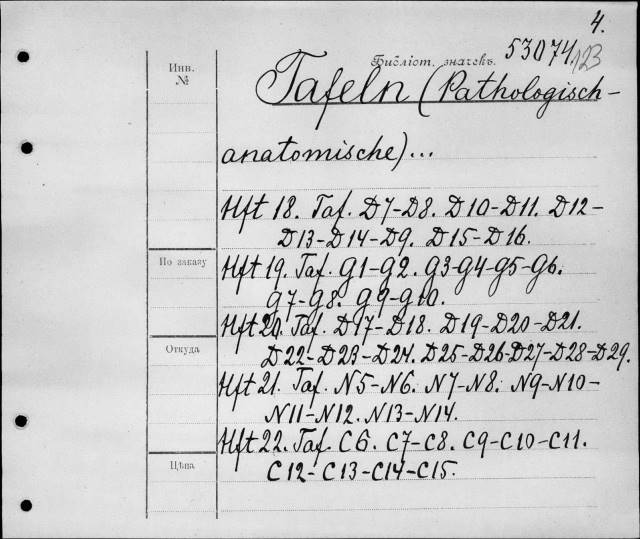 4.
Инв.
№
Библіот. значекъ.
53074.
123
Tafeln (Pathologisch-
anatomische)...
Hft 18. Taf. D7-D8. D10-D11. D12-
D13-D14-D9. D15-D16.
По заказу
Hft 19. Taf. G1-G2. G3-G4-G5-G6.
G7-G8. G9-G10.
Hft 20. Taf. D17-D18. D19-D20-D21.
Откуда
D22-D23-D24. D25-D26-D27-D28-D29.
Hft 21. Taf. N5-N6. N7-N8. N9-N10-
N11-N12. N13-N14.
Hft 22. Taf. C6. C7-C8. C9-C10-C11.
Цѣна
C12-C13-C14-C15.